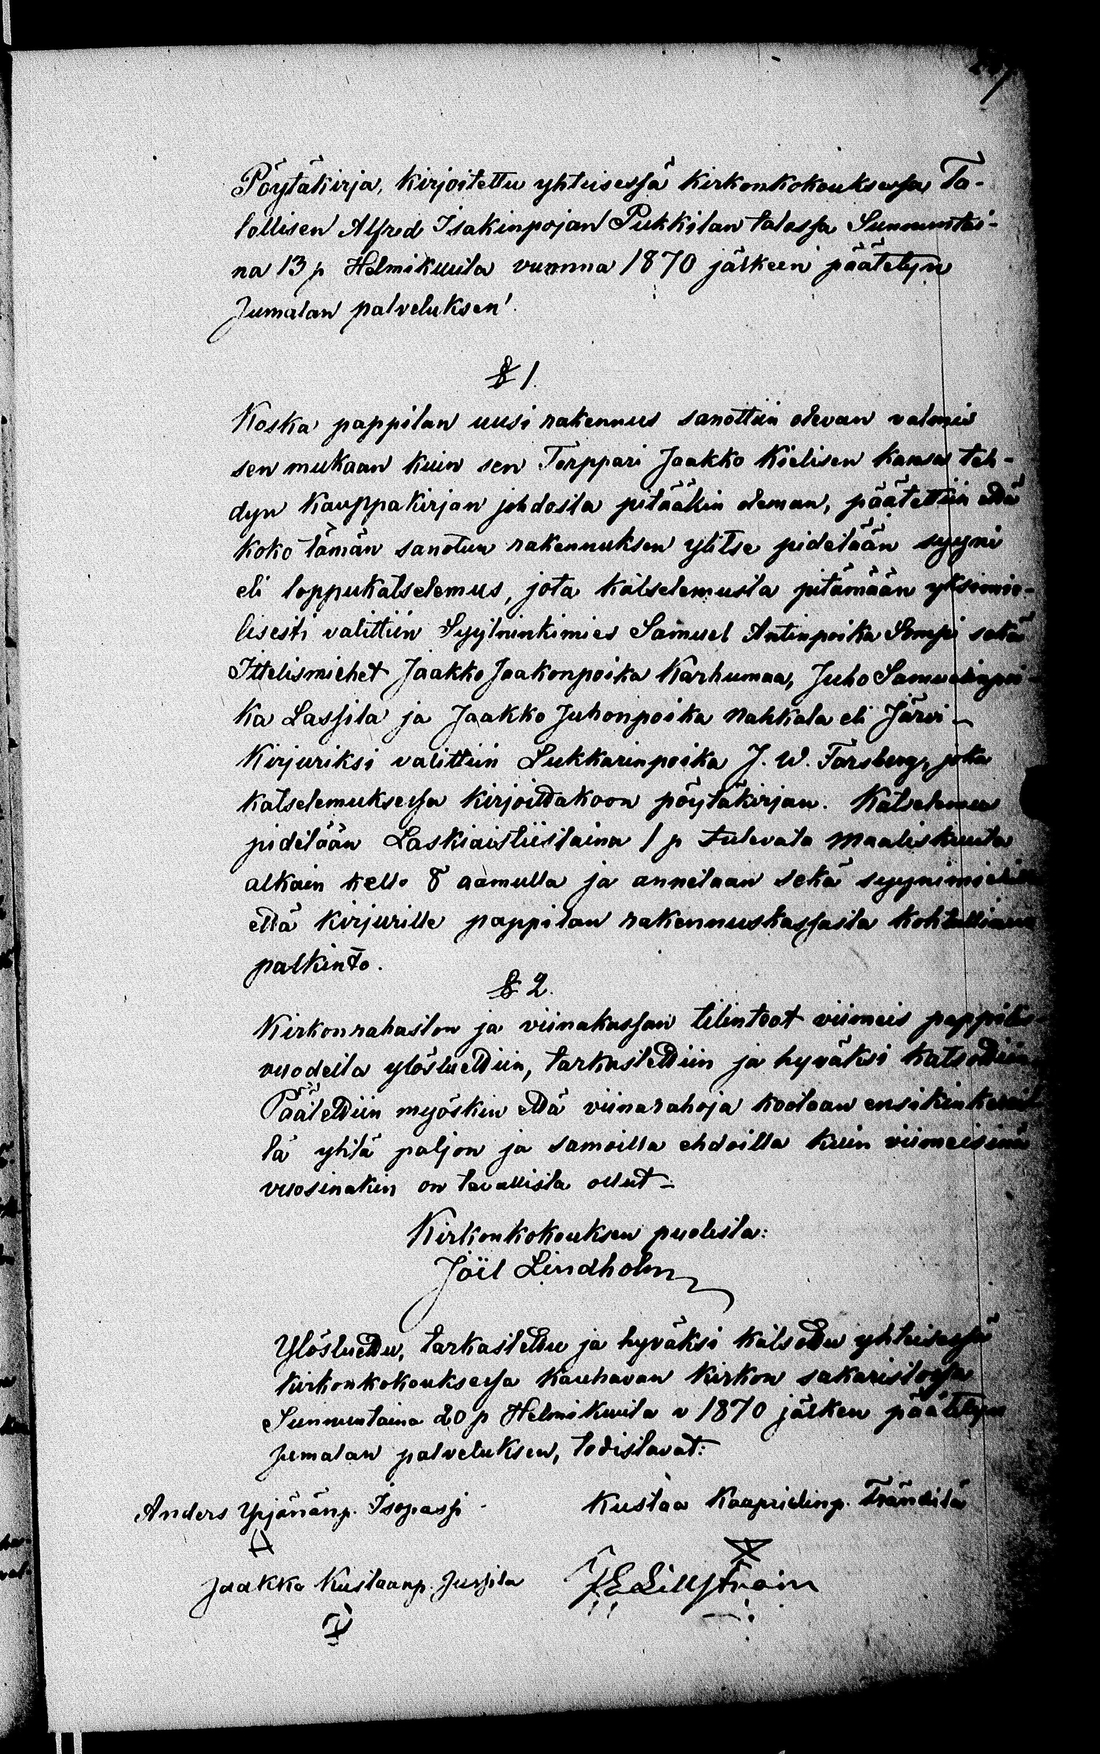 Pöytäkirja, kirjoitettu yhteisessä kirkonkokouksessa Ta-
lollisen Alfred Isakinpojan Pukkilan talossa Sunnuntai-
na 13 p Helmikuuta vuonna 1870 jälkeen päätetyn
Jumalan palveluksen.
§ 1.
Koska pappilan uusi rakennus sanottiin olevan valmis
sen mukaan kuin sen Torppari Jaakko Kielisen kanssa teh-
dyn kauppakirjan johdosta pitääkin oleman, päätettiin että
koko tämän sanotun rakennuksen ylitse pidetään syyni
eli loppukatselemus, jota katselemusta pitämään yksimie-
lisesti valittiin Syytninkimies Samuel Antinpoika Sompi sekä
Ittelismiehet Jaakko Jaakonpoika Karhumaa, Juho Samuelinpoi-
ka Lassila ja Jaakko Juhonpoika Nahkala eli Järvi-
Kirjuriksi valittiin Lukkarinpoika J. W. Forsberg, joka
katselemuksessa kirjoittakoon pöytäkirjan. Katselemus
pidetään Laskiaistiistaina 1 p tulevata Maaliskuuta
alkain kello 8 aamulla ja annetaan sekä syynimiehille
että kirjurille pappilan rakennuskassasta kohtullinen
palkinto.
§ 2.
Kirkonrahaston ja viinakassan tilinteot viimeis pappila
vuodelta ylösluettiin, tarkastettiin ja hyväksi katsottiin
Päätettiin myöskin että viinarahoja kootaan ensikinkereil
lä yhtä paljon ja samoilla ehdoilla kuin viimeisinä
vuosinakin on tavallista ollut-
Kirkonkokouksen puolesta:
Joël Lindholm
Ylösluettu, tarkastettu ja hyväksi katsottu yhteisessä
kirkonkokouksessa Kauhavan kirkon sakaristossa
Sunnuntaina 20 p Helmikuuta v 1870 jälken päätetyn
Jumalan palveluksen, todistavat:
Anders Yrjönänp. Isopassi Kustaa Kaapridinp. Frändilä
Jaakko Kustaanp. Jussila